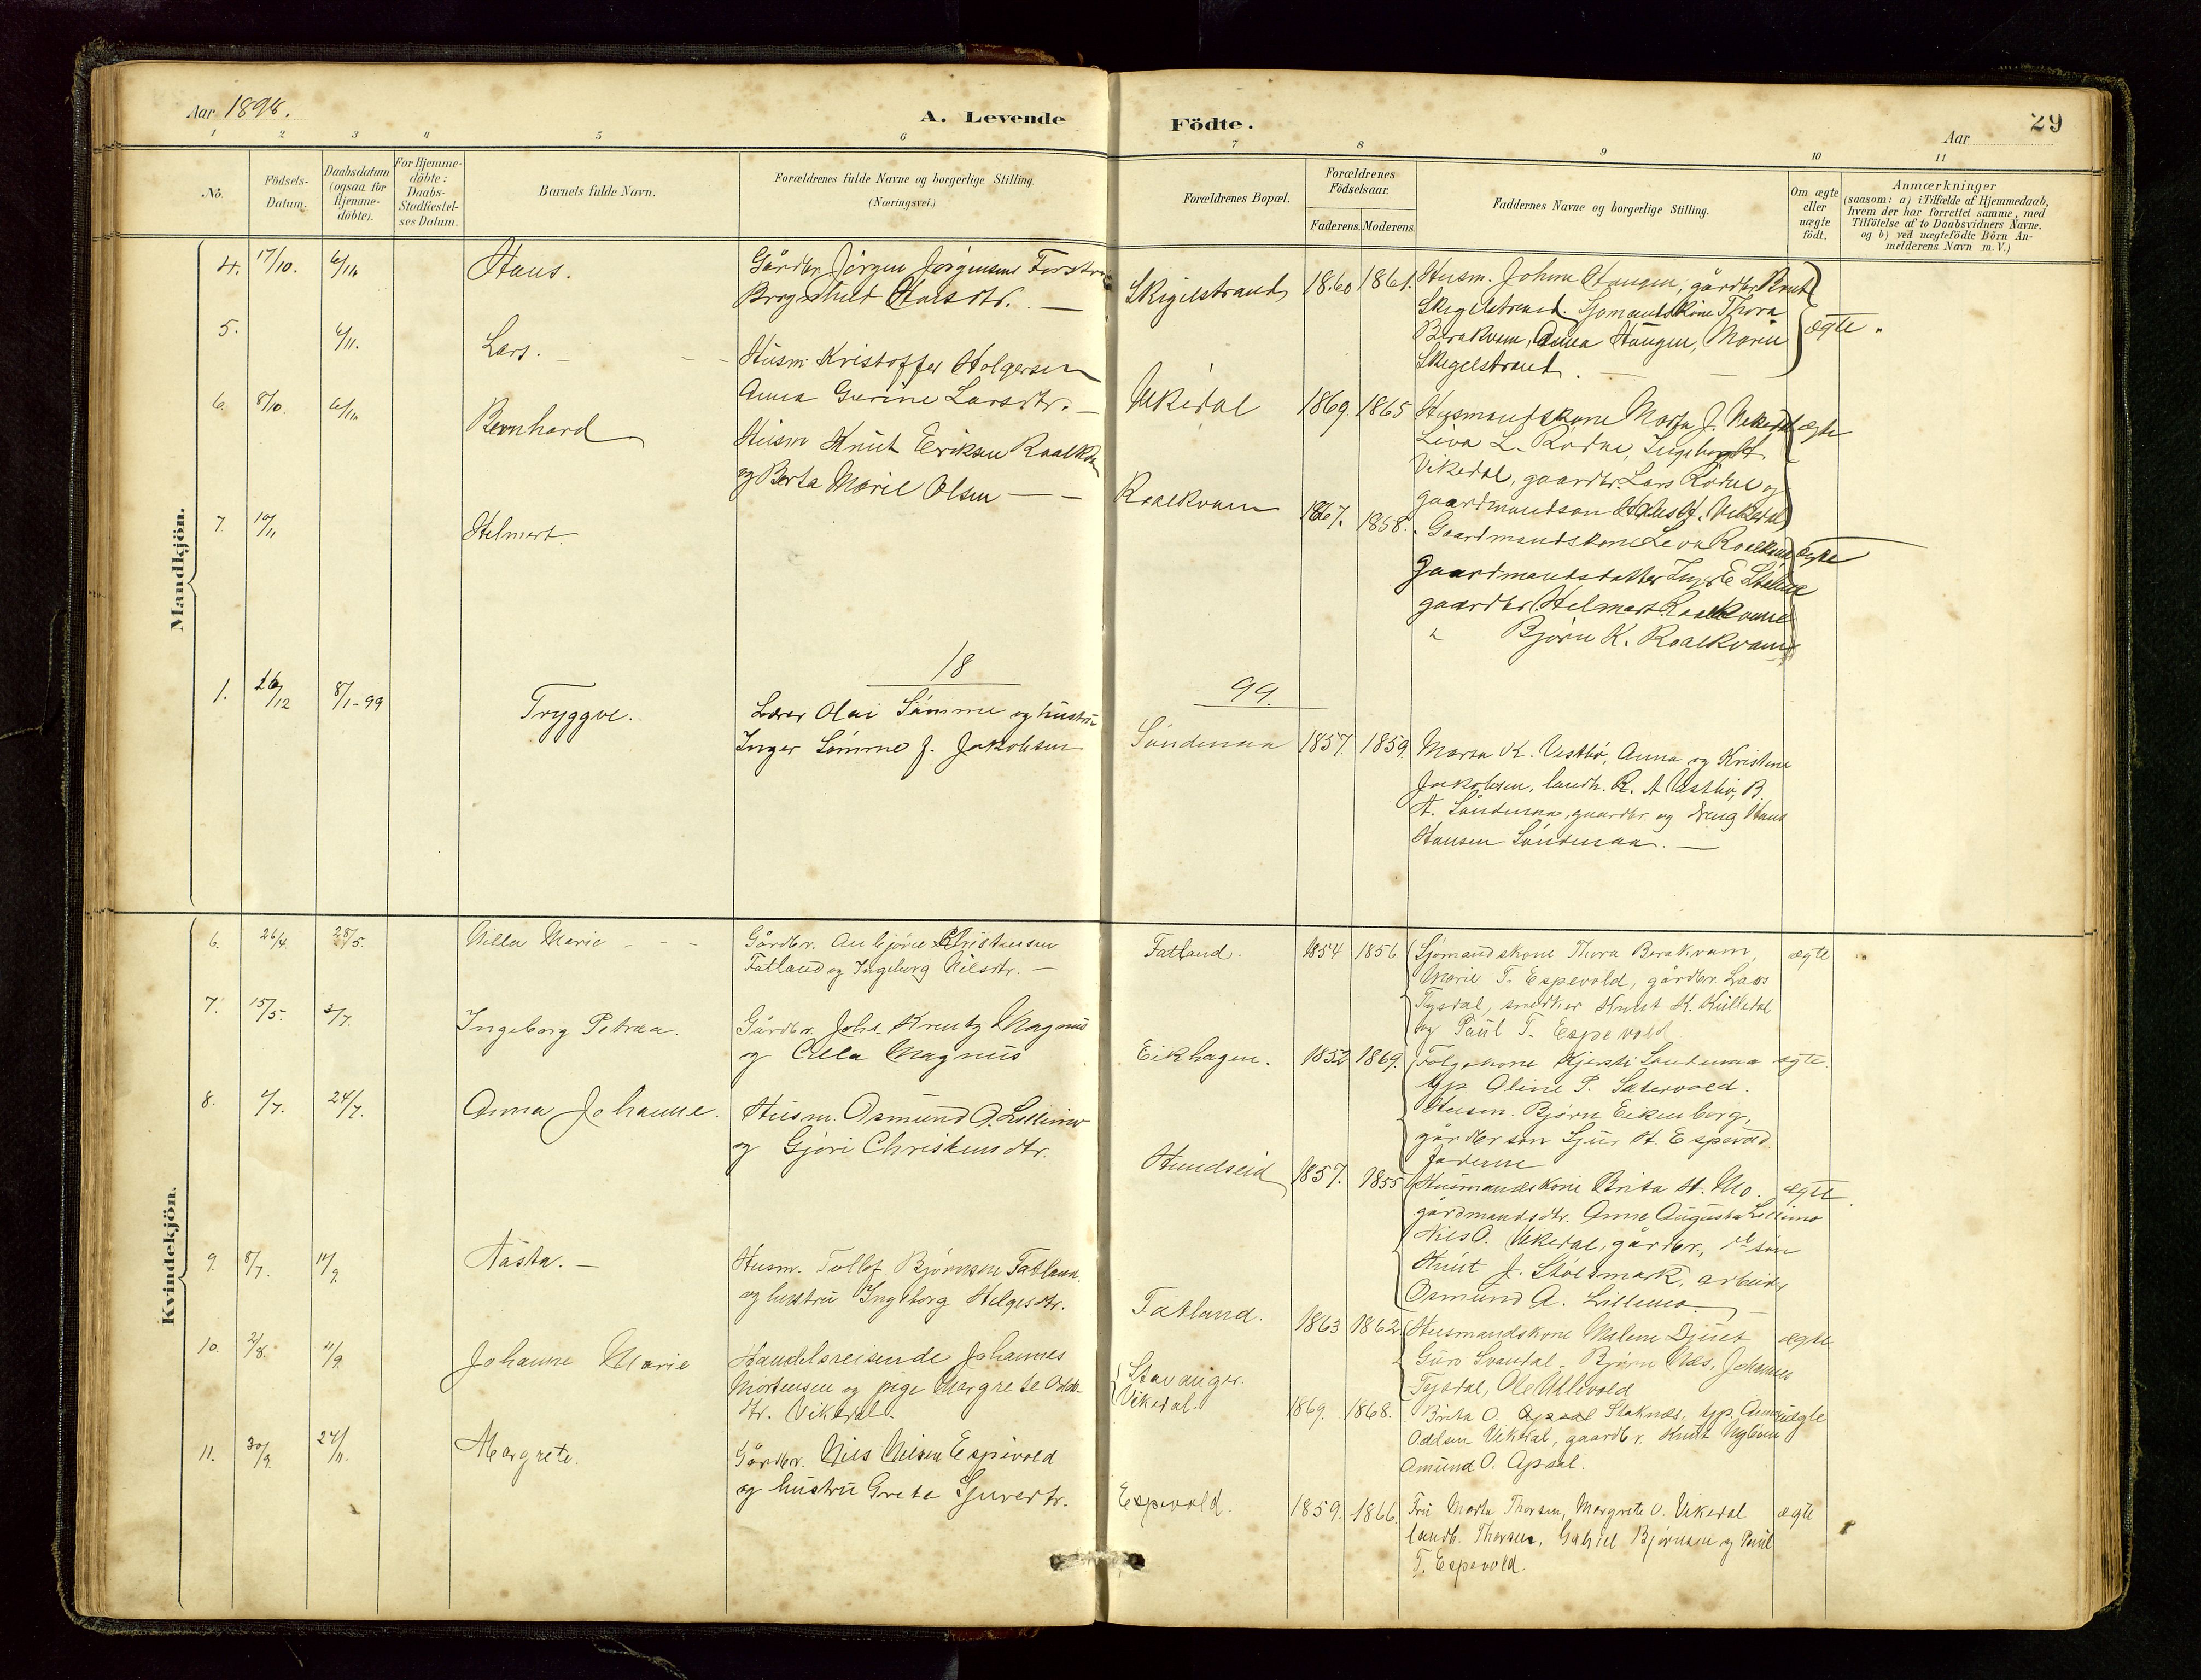 Aar 1898.
A. Levende
Födte.
Aar
29
1 2 3 4 5 6 7 8 9 10 11
No.
Födsels-
Datum.
Daabsdatum
(ogsaa for
Hjemme-
döbte).
For Hjemme-
döbte:
Daabs-
Stadfæstel-
ses Datum.
Barnets fulde Navn.
Forældrenes fulde Navne og borgerlige Stilling.
(Næringsvei.)
Forældrenes Bopæl.
Forældrenes
Födselsaar.
Faderens. Moderens.
Faddernes Navne og borgerlige Stilling.
Om ægte
eller
uægte
födt.
Anmærkninger
(saasom: a) i Tilfælde af Hjemmedaab,
hvem der har forrettet samme, med
Tilföielse af to Daabsvidners Navne.
og b) ved uægtefödte Börn An-
melderens Navn m. V.)
Mandkjön.
4. 17/10. 6/11 Hans.
Gårdbr. Jörgen Jörgensen
Skigelstrand 1860 1861.
Husm. Johan Haugen, gårdbr. Knut
Skigelstrand. Sjomandskone Thora
Berakvam, Anna Haugen, Maria
Skigelstrand.
ægte.
5. 6/11. Lars.
Husm. Kristoffer Holgersen
Anna Gurine Larsdtr.
Vikedal 1869. 1865
Husmandskone Marta J. Vikedal
Liva L. Rodne, Ingeborg H.
Vikedal, gaardbr. Lars Rodne og
gaardmandson H. Vikedal
ægte
6. 8/10. 6/11 Bernhard
Husm Knut Eriksen Raalkvam
og Berta Marie Olsen
Raalkvam 1867. 1858.
Gaardmandskone Leva Raalkvam
gaardmandsdatter
gaardbr. Helmert Raalkvam
Bjørn K. Raalkvam
ægte
7. 10/11 Helmert.
18
99.
1. 26/12 8/1-99 Tryggve.
Lærer Olai Sömme og hustru
Inger Sömme f. Jakobsen
Söndenaa 1857. 1859.
Marta K. Vestbö, Anna og Kristine
Jakobsen, landh. R. A Vestbö, B.
A. Söndenaa, gaardbr. og dreng Hans
Hansen Söndenaa.
Kvindekjön.
6. 26/4. 28/5. Nilla Marie
Gårdbr. Anbjörn Kristensen
Fatland og Ingeborg Nilsdtr.
Fatland. 1854 1856.
Sjömandskone Thora Berakvam,
Marie T. Espevold, gårdbr. Lars
Tysdal, snedker Knut K.
og Paul T. Espevold.
ægte
7. 15/5. 3/7. Ingeborg Petraa.
Gårdbr. Joh. Kreutz Magnus
og Cilla Magnus
Eikhagen. 1852 1869.
Fölgekone Kjersti Sondenaa
Gp. Oline P. Sætervold.
Husm. Björn Eikenborg,
gårdbr sön Sjur H. Espevold
faderen
ægte.
8. 24/7. Anna Johanne.
Husm. Osmund A. Lillimo
og Gjöri Christensdtr.
Hundseid 1857. 1855
Husmandskone Brita H. Mo.
gårdmandsdtr. Anne Augusta Lillimo
Nils O. Vikedal, gårdbr., sön
Knut J. Stölsmark, arbeider
Osmund A. Lillimo.
ægte.
9. 8/7. 11/9. Aasta.
Husm. Tollef Björnsen Fatland.
og hustru Ingeborg Helgesdtr.
Fatland. 1863 1862
Husmandskone Malene Djuet
Guro Svandal. Björn Næs, Johannes
Tysdal, Ole Ullevold
ægte
10. 2/8. 11/9. Johanne Marie
Handelsreisende Johannes
Mortensen og pige Margrete Odds-
dtr. Vikedal.
Stavanger.
Vikedal. 1869. 1868.
Brita O. Staknæs, Gp. Anne
Oddsen Vikedal, gaardbr. Knut
Amund O. Apsal.
uægte
11. 30/9. 27/11. Margrete.
Gårdbr. Nils Nilsen Espevold
og hustru Greta Sjursdtr.
Espevold. 1859. 1866.
Fru Marta Thorsen, Margrete O. Vikedal
landh. Thorsen, Gabriel Björnsen og Paul
T. Espevold.
ægte